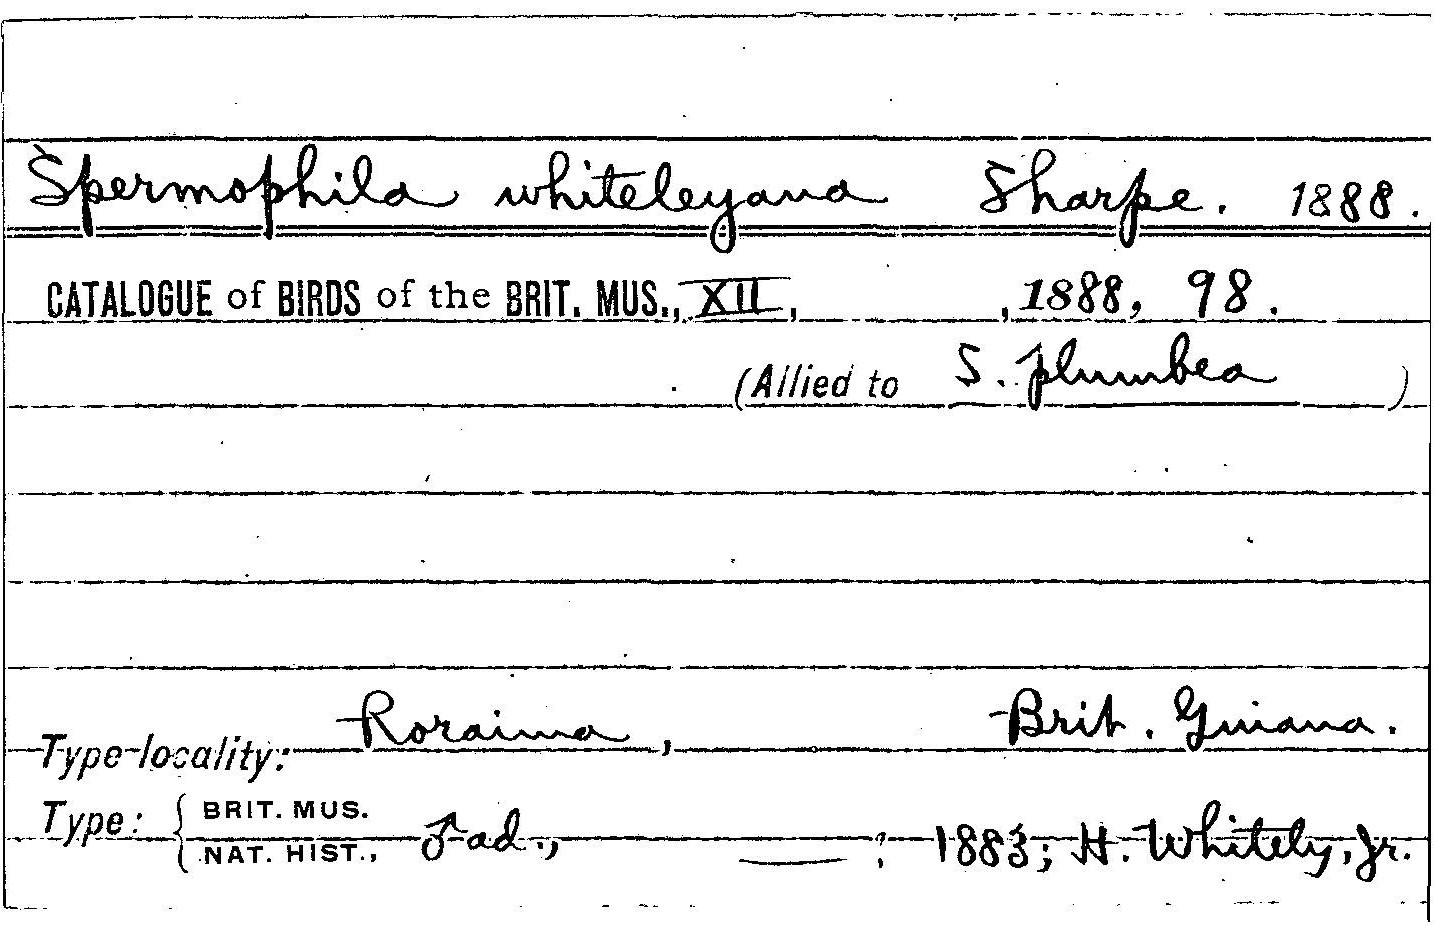 Spermophila whiteleyana Sharpe. 1888.
CATALOGUE of BIRDS of the BRIT. MUS., XII, , 1888, 98.
(Allied to S. plumbea )
Type-locality: Roraima, Brit. Guiana.
Type: { BRIT. MUS.
NAT. HIST., ♂ ad., — ; 1883; H. Whitely, Jr.